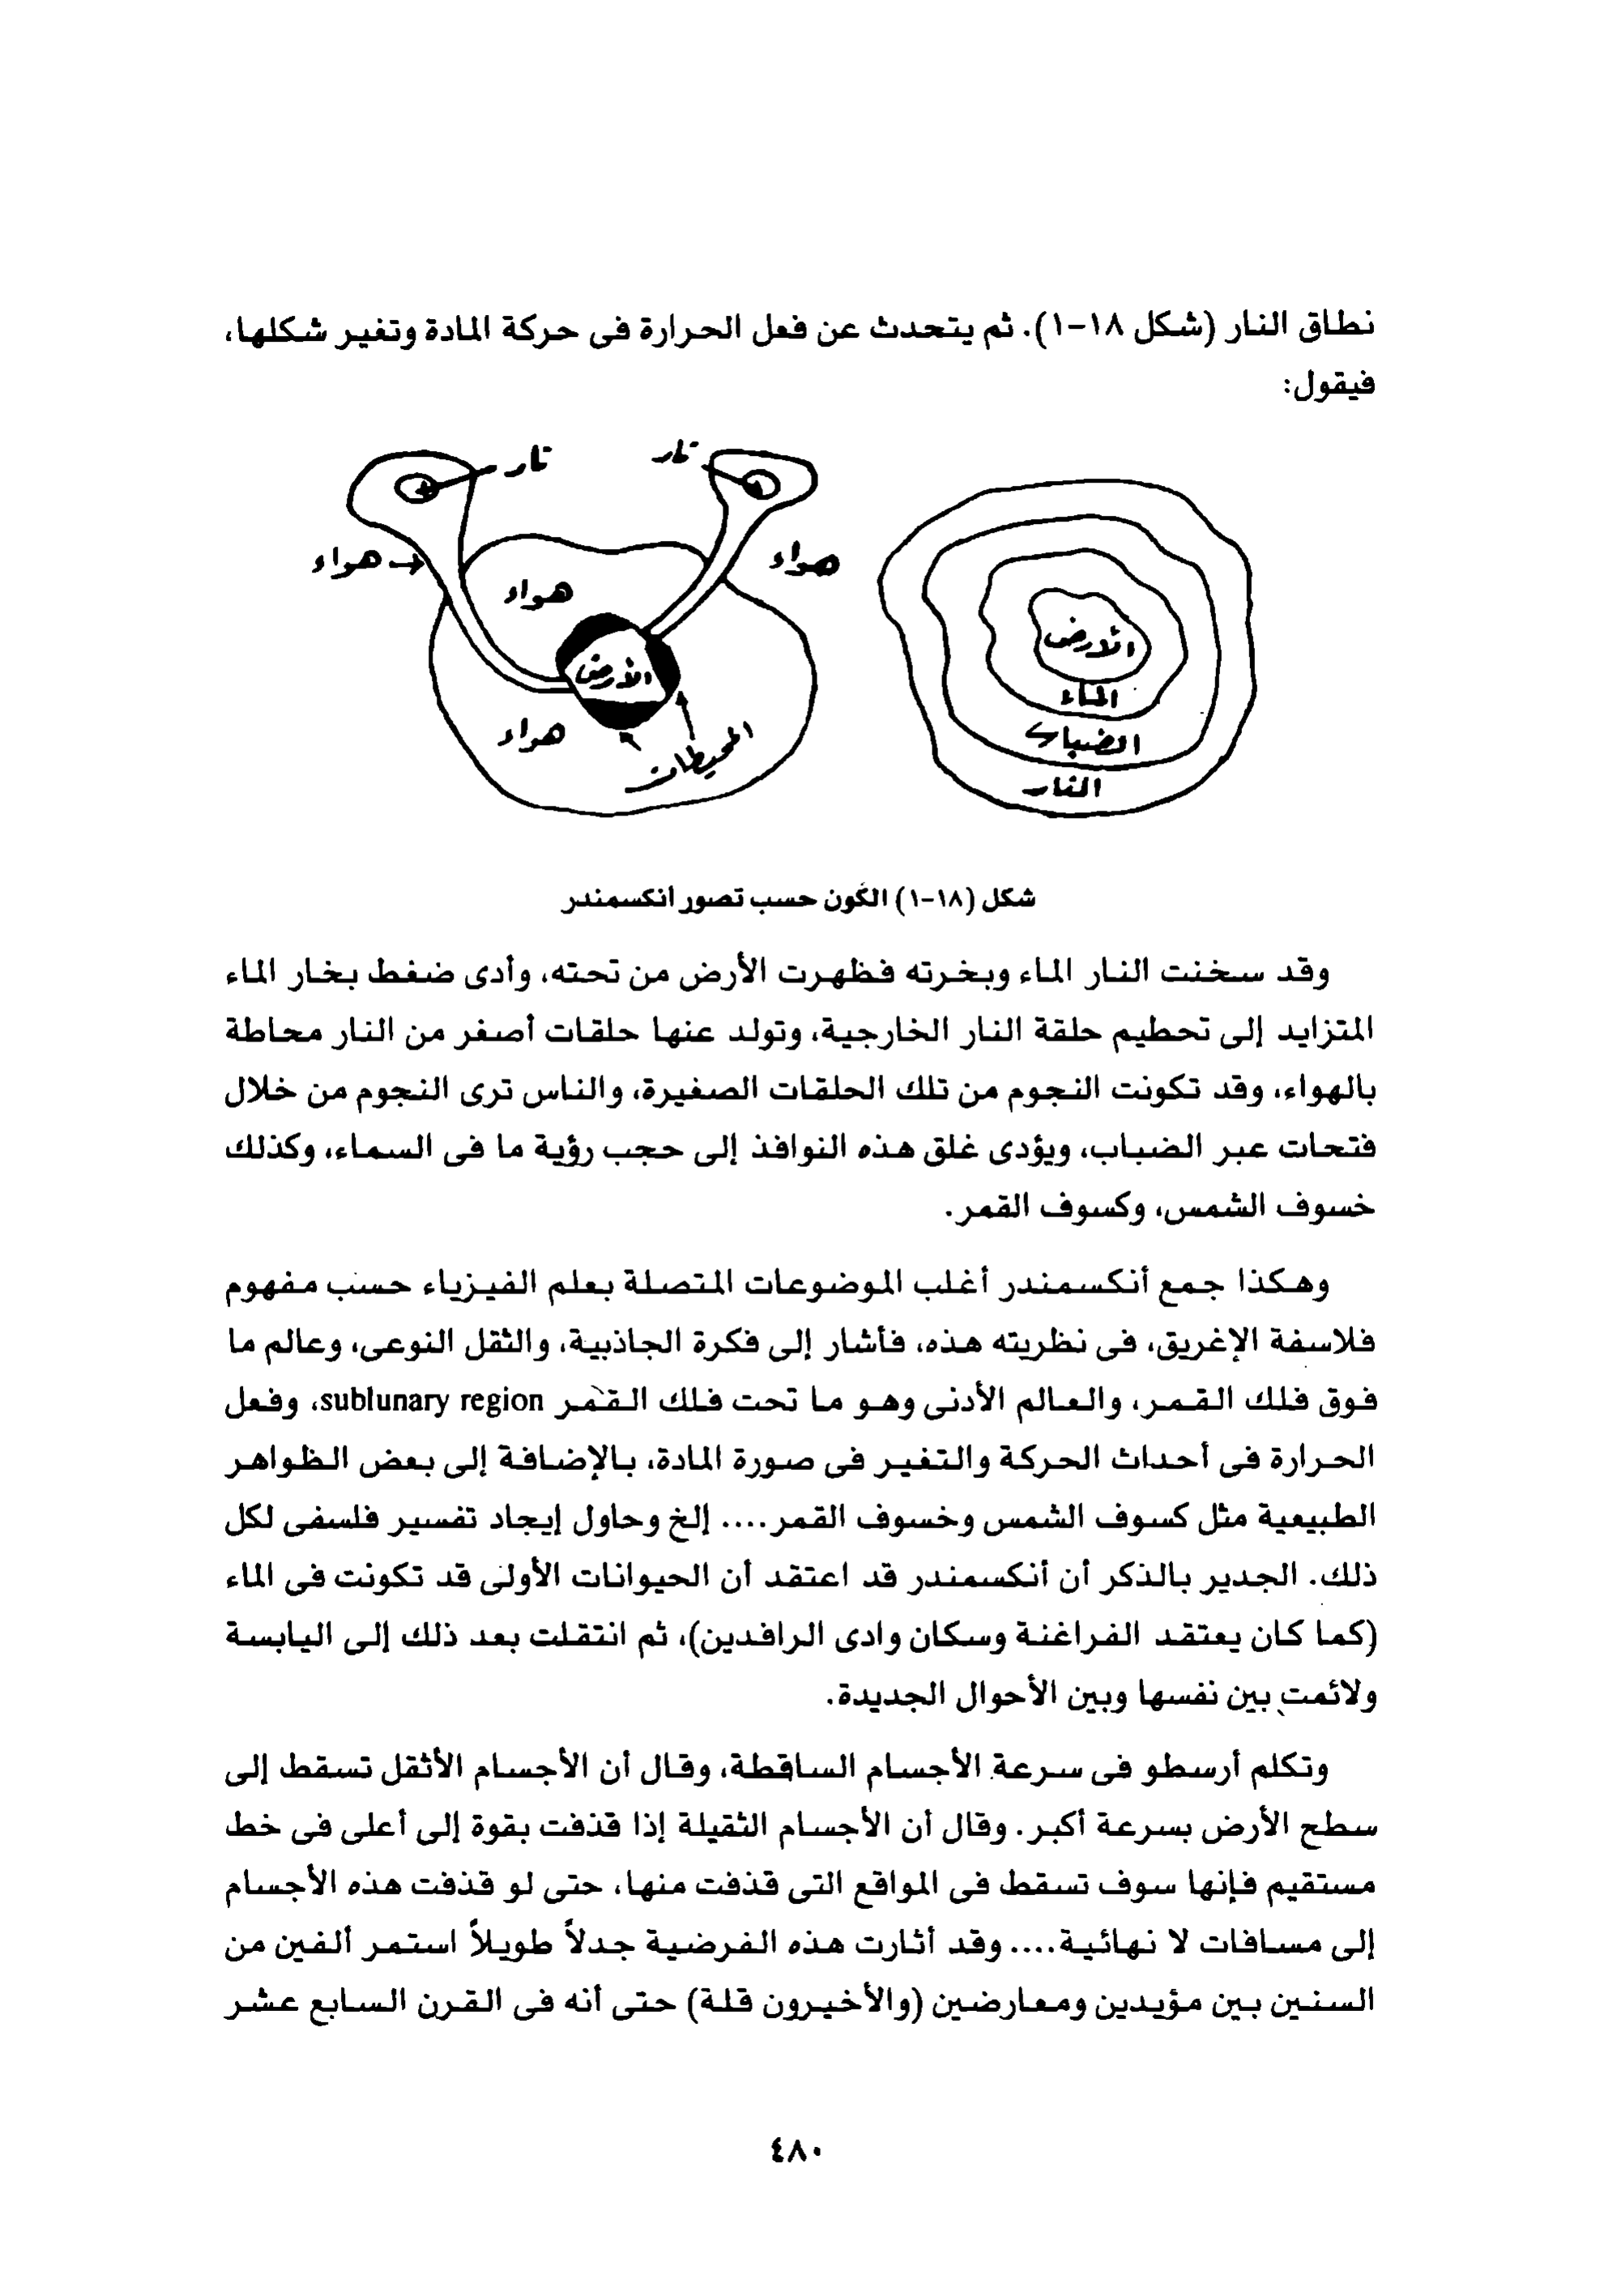 نطاق النار (شكل ١٨-١). ثم يتحدث عن فعل الحرارة فى حركة المادة وتغير شكلها،
فيقول:
نار
نار
هواء
هواء
هواء
الأرض
هواء
المحيطات
الأرض
الماء
الضباب
النار
شكل (١٨-١) الكون حسب تصور انكسمندر
وقد سخنت النار الماء وبخرته فظهرت الأرض من تحته، وأدى ضغط بخار الماء
المتزايد إلى تحطيم حلقة النار الخارجية، وتولد عنها حلقات أصغر من النار محاطة
بالهواء، وقد تكونت النجوم من تلك الحلقات الصغيرة، والناس ترى النجوم من خلال
فتحات عبر الضباب، ويؤدى غلق هذه النوافذ إلى حجب رؤية ما فى السماء، وكذلك
خسوف الشمس، وكسوف القمر.
وهكذا جمع أنكسمندر أغلب الموضوعات المتصلة بعلم الفيزياء حسب مفهوم
فلاسفة الإغريق، فى نظريته هذه، فأشار إلى فكرة الجاذبية، والثقل النوعى، وعالم ما
فوق فلك القمر، والعالم الأدنى وهو ما تحت فلك القمر sublunary region، وفعل
الحرارة فى أحداث الحركة والتغير فى صورة المادة، بالإضافة إلى بعض الظواهر
الطبيعية مثل كسوف الشمس وخسوف القمر.... إلخ وحاول إيجاد تفسير فلسفى لكل
ذلك. الجدير بالذكر أن أنكسمندر قد اعتقد أن الحيوانات الأولى قد تكونت فى الماء
(كما كان يعتقد الفراغنة وسكان وادى الرافدين)، ثم انتقلت بعد ذلك إلى اليابسة
ولائمت بين نفسها وبين الأحوال الجديدة.
وتكلم أرسطو فى سرعة الأجسام الساقطة، وقال أن الأجسام الأثقل تسقط إلى
سطح الأرض بسرعة أكبر. وقال أن الأجسام الثقيلة إذا قذفت بقوة إلى أعلى فى خط
مستقيم فإنها سوف تسقط فى المواقع التى قذفت منها، حتى لو قذفت هذه الأجسام
إلى مسافات لا نهائية.... وقد أثارت هذه الفرضية جدلاً طويلاً استمر ألفين من
السنين بين مؤيدين ومعارضين (والأخيرون قلة) حتى أنه فى القرن السابع عشر
٤٨٠